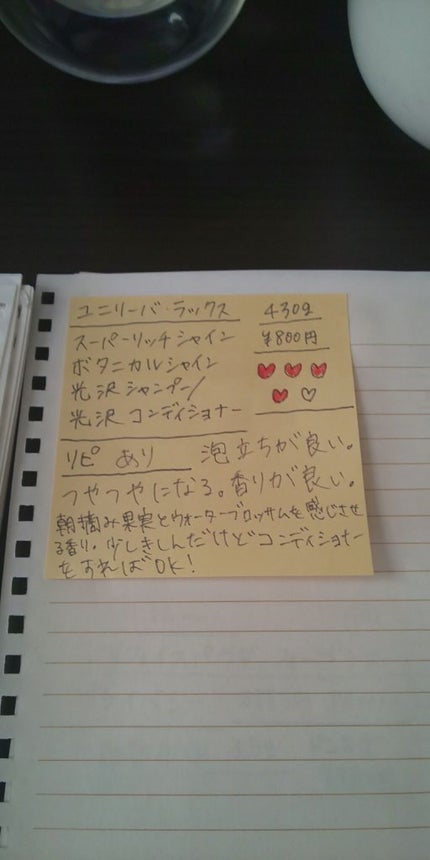 ユニリーバ・ラックス
430g
スーパーリッチシャイン
¥800円
ボタニカルシャイン
光沢シャンプー/
光沢 コンディショナー
リピ あり
泡立ちが良い。
つやつやになる。香りが良い。
朝摘み果実とウォーターブロッサムを感じさせ
る香り。少しきしんだけどコンディショナー
をすればOK!